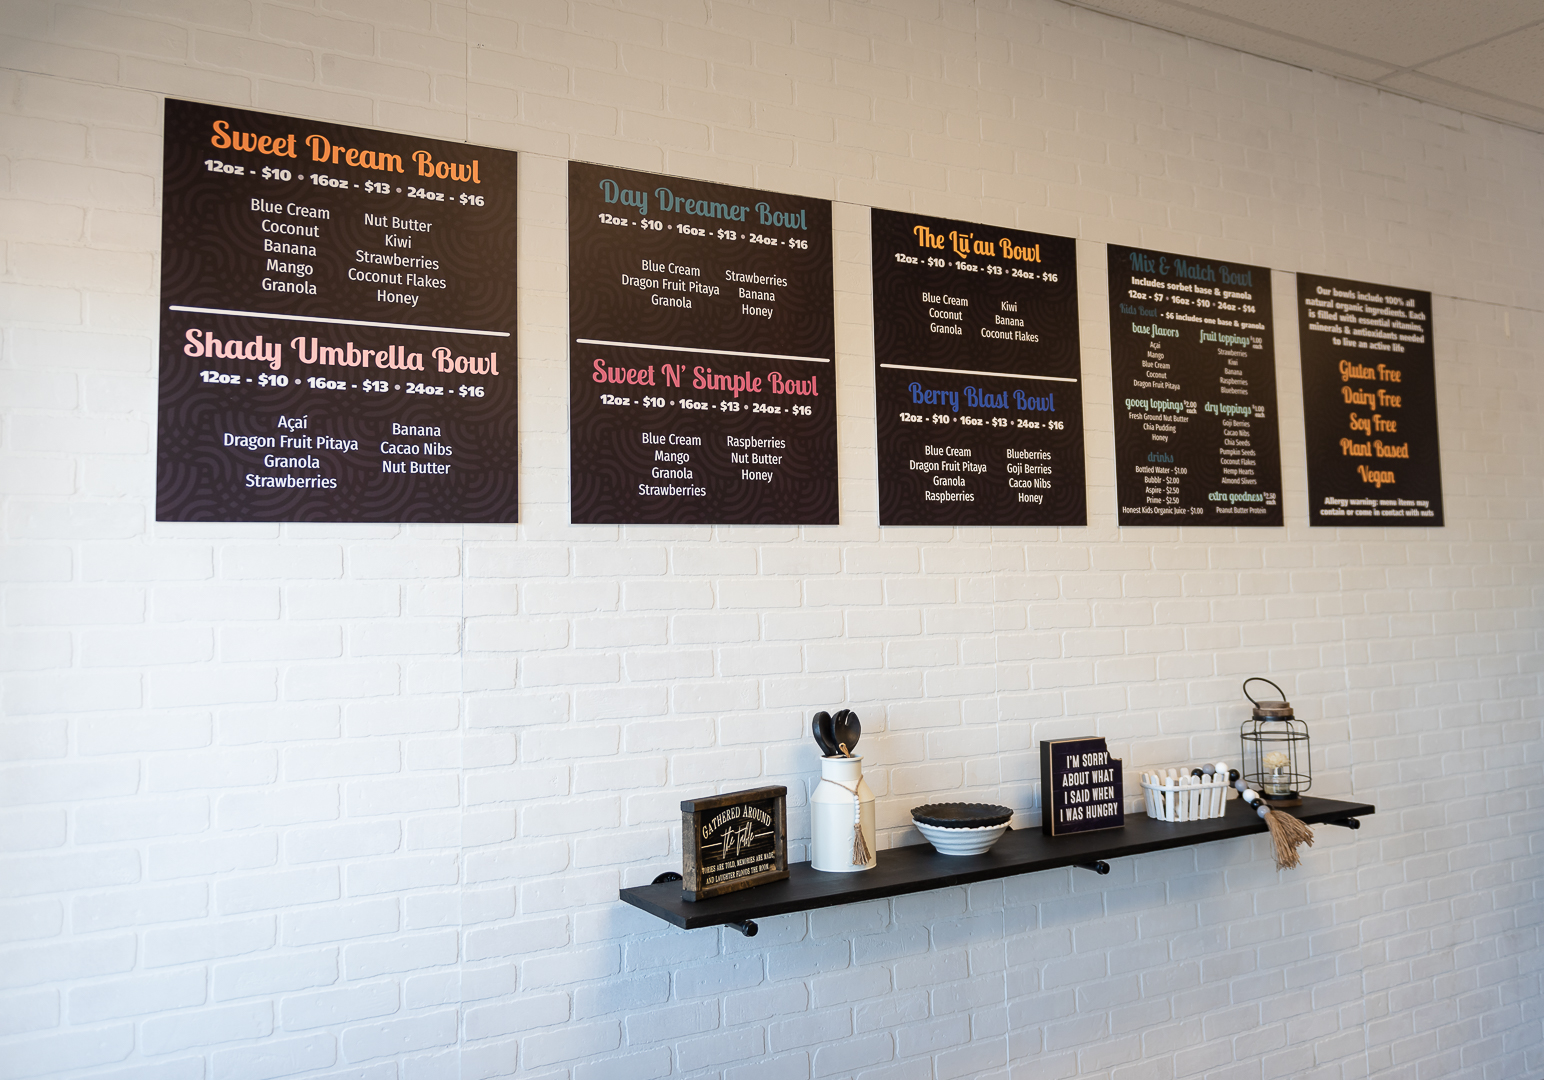 Sweet Dream Bowl
12oz - $10 • 16oz - $13 • 24oz - $16
Blue Cream
Coconut
Banana
Mango
Granola
Nut Butter
Kiwi
Strawberries
Coconut Flakes
Honey
Shady Umbrella Bowl
12oz - $10 • 16oz - $13 • 24oz - $16
Açaí
Dragon Fruit Pitaya
Granola
Strawberries
Banana
Cacao Nibs
Nut Butter
Day Dreamer Bowl
12oz - $10 • 16oz - $13 • 24oz - $16
Blue Cream
Dragon Fruit Pitaya
Granola
Strawberries
Banana
Honey
Sweet N' Simple Bowl
12oz - $10 • 16oz - $13 • 24oz - $16
Blue Cream
Mango
Granola
Strawberries
Raspberries
Nut Butter
Honey
The Lū'au Bowl
12oz - $10 • 16oz - $13 • 24oz - $16
Blue Cream
Coconut
Granola
Kiwi
Banana
Coconut Flakes
Berry Blast Bowl
12oz - $10 • 16oz - $13 • 24oz - $16
Blue Cream
Dragon Fruit Pitaya
Granola
Raspberries
Blueberries
Goji Berries
Cacao Nibs
Honey
Mix & Match Bowl
Includes sorbet base & granola
12oz - $7 • 16oz - $10 • 24oz - $14
Kids Bowl - $6 includes one base & granola
base flavors
Açaí
Mango
Blue Cream
Coconut
Dragon Fruit Pitaya
gooey toppings $2.00 each
Fresh Ground Nut Butter
Chia Pudding
Honey
drinks
Bottled Water - $1.00
Bubblr - $2.00
Aspire - $2.50
Prime - $2.50
Honest Kids Organic Juice - $1.00
fruit toppings $1.00 each
Strawberries
Kiwi
Banana
Raspberries
Blueberries
dry toppings $1.00 each
Goji Berries
Cacao Nibs
Chia Seeds
Pumpkin Seeds
Coconut Flakes
Hemp Hearts
Almond Slivers
extra goodness each
Peanut Butter Protein
Our bowls include 100% all
natural organic ingredients. Each
is filled with essential vitamins,
minerals & antioxidants needed
to live an active life
Gluten Free
Dairy Free
Soy Free
Plant Based
Vegan
Allergy warning: menu items may
contain or come in contact with nuts
GATHERED AROUND
the table
STORIES ARE TOLD, MEMORIES ARE MADE
AND LAUGHTER FLOODS THE ROOM
I'M SORRY
ABOUT WHAT
I SAID WHEN
I WAS HUNGRY